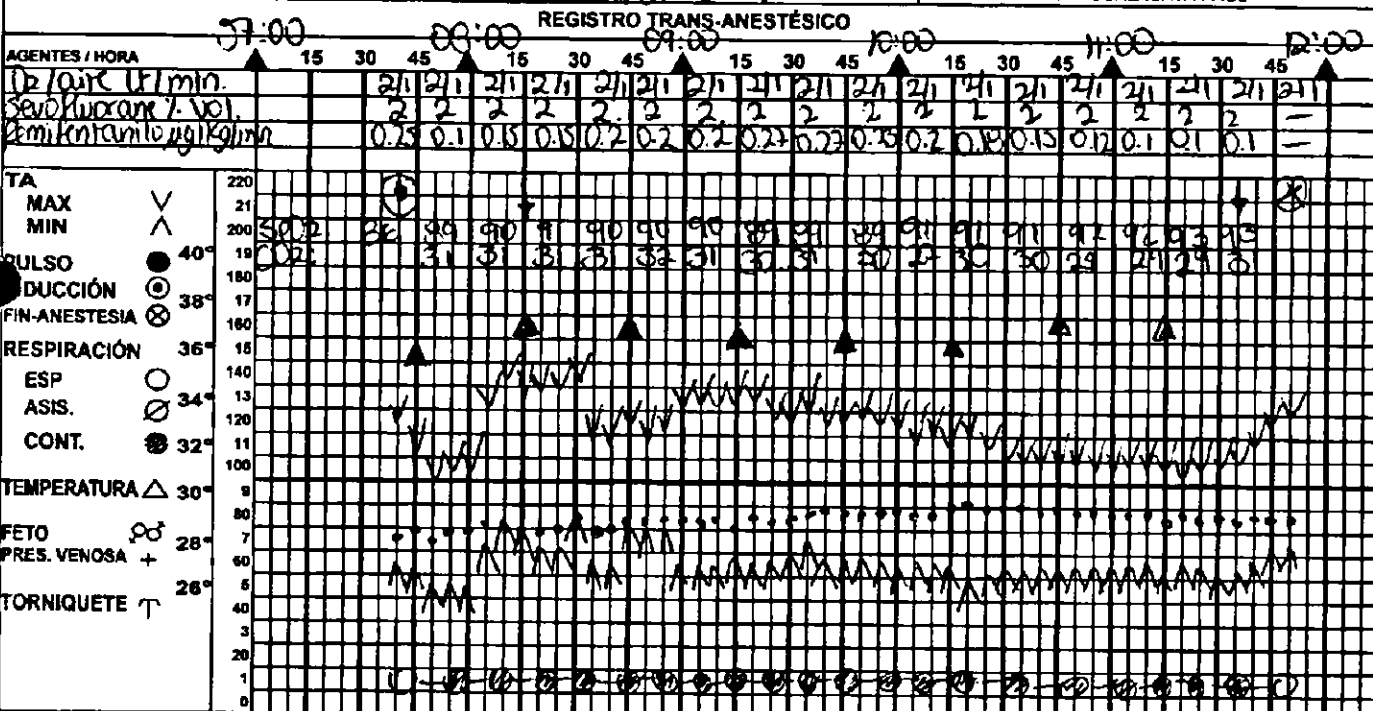 REGISTRO TRANS-ANESTÉSICO
07:00 08:00 09:00 10:00 11:00 12:00
AGENTES / HORA 15 30 45 15 30 45 15 30 45 15 30 45 15 30 45
O2/aire Lt/min. 2/1 2/1 2/1 2/1 2/1 2/1 2/1 2/1 2/1 2/1 2/1 2/1 2/1 2/1 2/1 2/1 2/1 2/1
Sevofluorane % Vol. 2 2 2 2 2 2 2 2 2 2 2 2 2 2 2 2 —
Remifentanilo µg/kg/min 0.25 0.1 0.15 0.15 0.2 0.2 0.2 0.27 0.27 0.25 0.2 0.18 0.15 0.12 0.1 0.1 0.1 —
TA
MAX
MIN
PULSO
DUCCIÓN
FIN-ANESTESIA
RESPIRACIÓN
ESP
ASIS.
CONT.
TEMPERATURA
FETO
PRES. VENOSA +
TORNIQUETE
40°
38°
36°
34°
32°
30°
28°
26°
220
21
200
19
180
17
160
15
140
13
120
11
100
9
80
7
60
5
40
3
20
1
0
SPO2 99 90 91 90 90 99 89 91 89 91 91 91 92 92 93 93
CO2 31 31 31 31 32 31 30 31 30 27 30 30 29 29 29